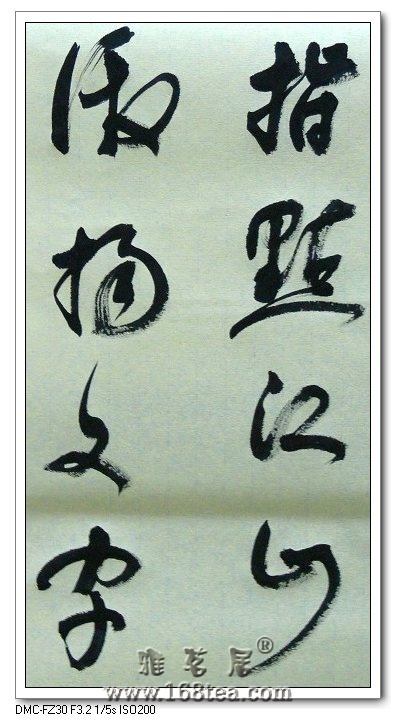 指點江山
激揚文字
雅茗居®
www.168tea.com
DMC-FZ30 F3.2 1/5s ISO200